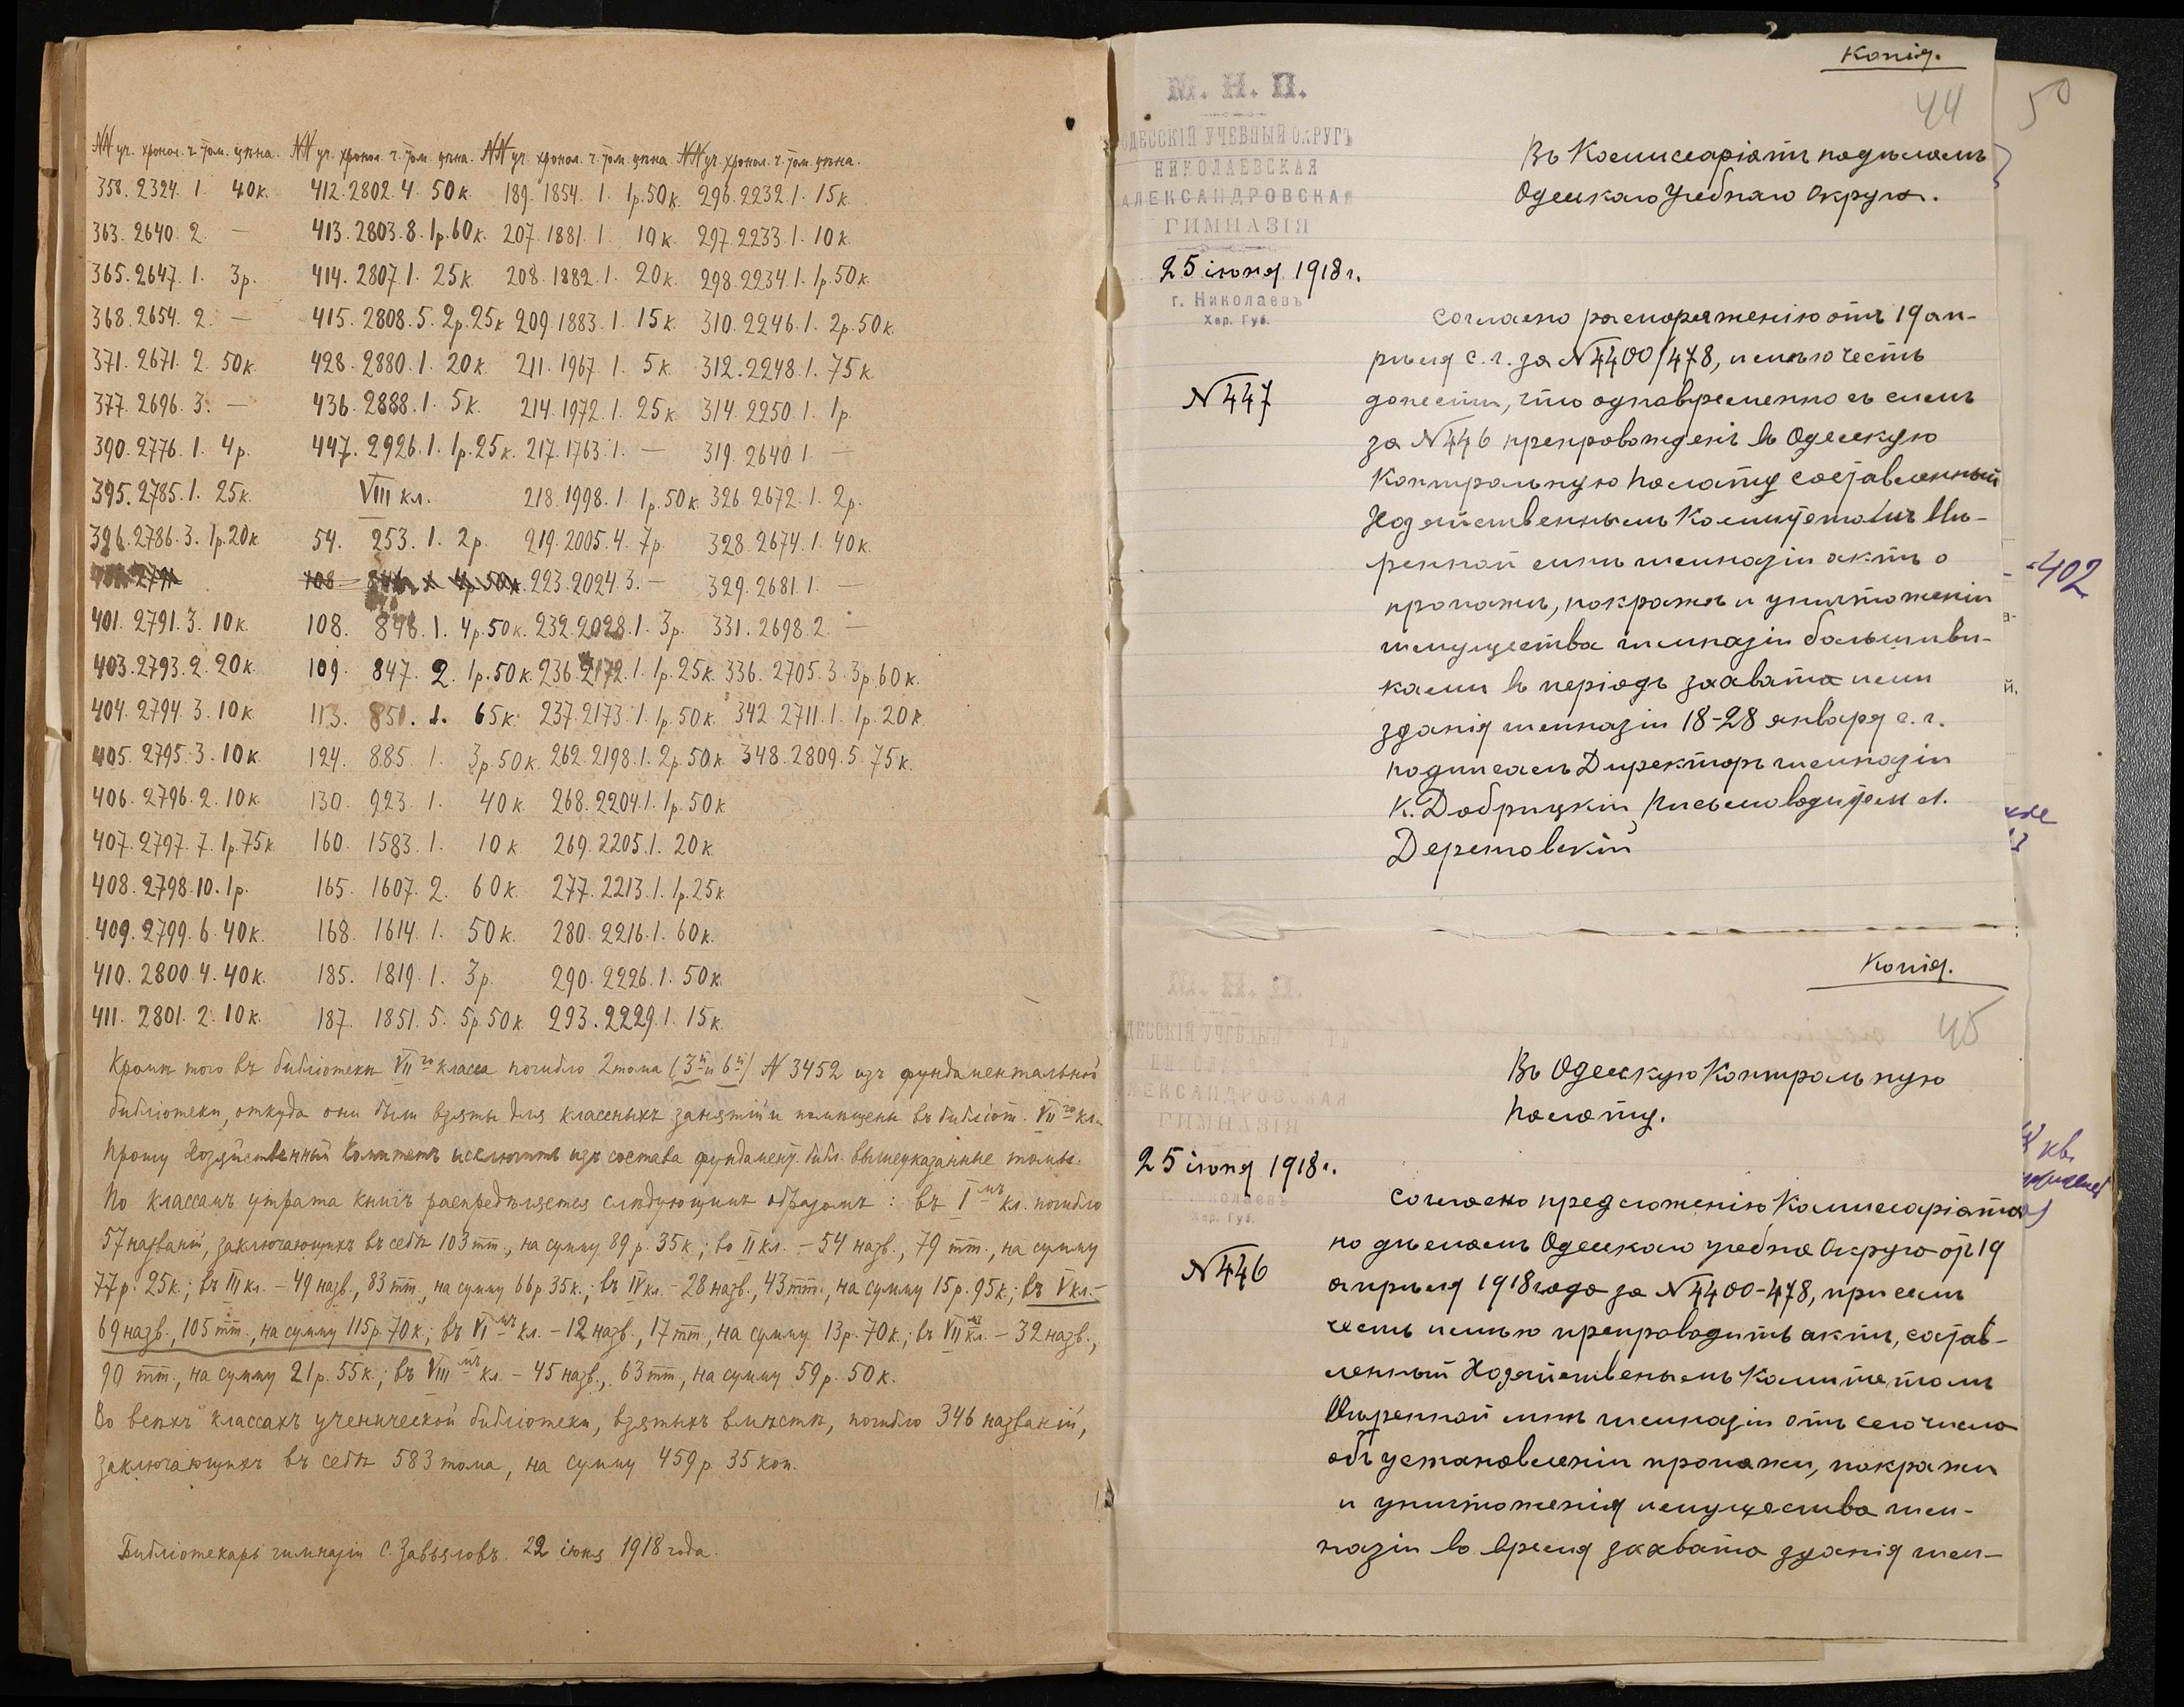 NN уч. хронол. ч. том. цѣна. NN уч. хронол. ч. том. цѣна. NN уч. хронол. ч. том. цѣна. NN уч. хронол. ч. том. цѣна.
358. 2324. 1. 40к. 412. 2802. 4. 50к. 189. 1854. 1. 1р.50к. 296. 2232. 1. 15к.
363. 2640. 2. — 413. 2803. 8. 1р.60к. 207. 1881. 1. 10к. 297. 2233. 1. 10к.
365. 2647. 1. 3р. 414. 2807. 1. 25к. 208. 1882. 1. 20к. 298. 2234. 1. 1р.50к.
368. 2654. 2. — 415. 2808. 5. 2р.25к 209. 1883. 1. 15к. 310. 2246. 1. 2р.50к.
371. 2671. 2. 50к. 428. 2880. 1. 20к. 211. 1967. 1. 5к. 312. 2248. 1. 75к.
377. 2696. 3. — 436. 2888. 1. 5к. 214. 1972. 1. 25к. 314. 2250. 1. 1р.
390. 2776. 1. 4р. 447. 2926. 1. 1р.25к. 217. 1763. 1. — 319. 2640. 1. —
395. 2785. 1. 25к. VIII кл. 218. 1998. 1. 1р.50к. 326. 2672. 1. 2р.
396. 2786. 3. 1р.20к. 54. 253. 1. 2р. 219. 2005. 4. 7р. 328. 2674. 1. 40к.
223. 2024. 3. — 329. 2681. 1. —
401. 2791. 3. 10к. 108. 846. 1. 4р.50к. 232. 2028. 1. 3р. 331. 2698. 2. —
403. 2793. 2. 20к. 109. 847. 2. 1р.50к. 236. 2172. 1. 1р.25к. 336. 2705. 3. 3р.60к.
404. 2794. 3. 10к. 113. 851. 1. 65к. 237. 2173. 1. 1р.50к. 342. 2711. 1. 1р.20к.
405. 2795. 3. 10к. 124. 885. 1. 3р.50к. 262. 2198. 1. 2р.50к. 348. 2809. 5. 75к.
406. 2796. 2. 10к. 130. 923. 1. 40к. 268. 2204. 1. 1р.50к.
407. 2797. 7. 1р.75к. 160. 1583. 1. 10к. 269. 2205. 1. 20к.
408. 2798. 10. 1р. 165. 1607. 2. 60к. 277. 2213. 1. 1р.25к.
409. 2799. 6. 40к. 168. 1614. 1. 50к. 280. 2216. 1. 60к.
410. 2800. 4. 40к. 185. 1819. 1. 3р. 290. 2226. 1. 50к.
411. 2801. 2. 10к. 187. 1851. 5. 5р.50к. 293. 2229. 1. 15к.
Кромѣ того въ библіотекѣ VII го класса погибло 2 тома (3й и 6й) N 3452 изъ фундаментальной
библіотеки, откуда они были взяты для классныхъ занятій и помѣщены въ библіот. VII го кл.
Прошу Хозяйственный Комитетъ исключить изъ состава фундамент. библ. вышеуказанные томы.
По классамъ утрата книгъ распредѣляется слѣдующимъ образомъ: въ I мъ кл. погибло
57 названій, заключающихъ въ себѣ 103 тт., на сумму 89 р. 35 к.; во II кл. – 54 назв., 79 тт., на сумму
77 р. 25к.; въ III кл. – 49 назв., 83 тт., на сумму 66 р. 35к.; въ IV кл. – 28 назв., 43 тт., на сумму 15 р. 95к.; въ V кл. –
69 назв., 105 тт., на сумму 115 р. 70к.; въ VI мъ кл. – 12 назв., 17 тт., на сумму 13 р. 70к.; въ VII мъ кл. – 32 назв.,
90 тт., на сумму 21 р. 55к.; въ VIII мъ кл. – 45 назв., 63 тт, на сумму 59 р. 50к.
Во всѣхъ классахъ ученической библіотеки, взятыхъ вмѣстѣ, погибло 346 названій,
заключающихъ въ себѣ 583 тома, на сумму 459 р. 35 коп.
Библіотекарь гимназіи С. Завьяловъ. 22 іюня 1918 года.
Копія.
44
50
М. Н. П.
ОДЕССКІЙ УЧЕБНЫЙ ОКРУГЪ
НИКОЛАЕВСКАЯ
АЛЕКСАНДРОВСКАЯ
ГИМНАЗІЯ
25 іюня 1918 г.
г. Николаевъ
Хер. Губ.
N 447
Въ Комиссаріатъ по дѣламъ
Одесскаго Учебнаго Округа.
Согласно распоряженію отъ 19 ап-
рѣля с. г. за N 4400/478, имѣю честь
донести, что одновременно съ симъ
за N 446 препровожденъ въ Одесскую
Контрольную Палату составленный
Хозяйственнымъ Комитетомъ Ввѣ-
ренной мнѣ гимназіи актъ о
пропажѣ, покражѣ и уничтоженіи
имущества гимназіи большеви-
ками въ періодъ захвата ими
зданія гимназіи 18-28 января с. г.
подписалъ Директоръ гимназіи
К. Добрицкій, Письмоводитель
402
Копія.
45
М. Н. П.
ОДЕССКІЙ УЧЕБНЫЙ
АЛЕКСАНДРОВСКАЯ
ГИМНАЗІЯ
25 іюня 1918 г.
г. Николаевъ
Хер. Губ.
N 446
Въ Одесскую Контрольную
Палату.
Согласно предложенію Комиссаріата
по дѣламъ Одесскаго учебна Округа отъ 19
апрѣля 1918 года за N 4400-478, при семъ
честь имѣю препроводить актъ, состав-
ленный Хозяйственымъ Комитетомъ
Ввѣренной мнѣ гимназіи отъ сего числа
объ установленіи пропажи, покражи
и уничтоженія имущества гим-
назіи во время захвата зданія гим-